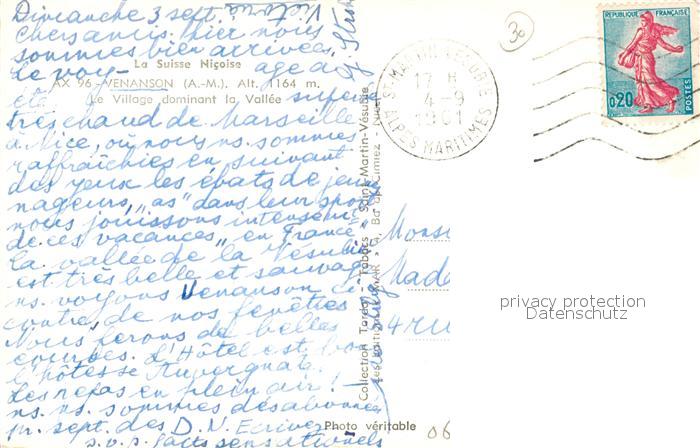 Dimanche 3 sept.
Chers amis. Hier nous
sommes bien arrivées
Le voyage a
La Suisse Niçoise
AX 96 - VENANSON (A.-M.). Alt. 1164 m.
été super
Le Village dominant la Vallée
très chaud de Marseille
à Nice, où nous ns. sommes
raffraîchies en suivant
des yeux les ébats de jeunes
nageurs, "as" dans leur sport
nous jouissons intensém-
de ces vacances "en France"
la vallée de la Vésubie
est très belle et sauvage
ns. voyons Venanson de
contre de nos fenêtres
Nous ferons de belles
courses. L'Hôtel est bon
l'hôtesse Auvergnate.
Les repas en plein air!
ns. ns. sommes désabonnées
pr. sept. des D. N. Ecrivez
s.v.p. faits sensationels
Victoria
Photo véritable
Collection Tardy - Tabacs - Saint-Martin-Vésubie
30
ST-MARTIN-VESUBIE
17 H
4 - 9
1961
ALPES MARITIMES
REPUBLIQUE FRANÇAISE
0,20
POSTES
Monsi
Mada
4 ru
06
privacy protection
Datenschutz